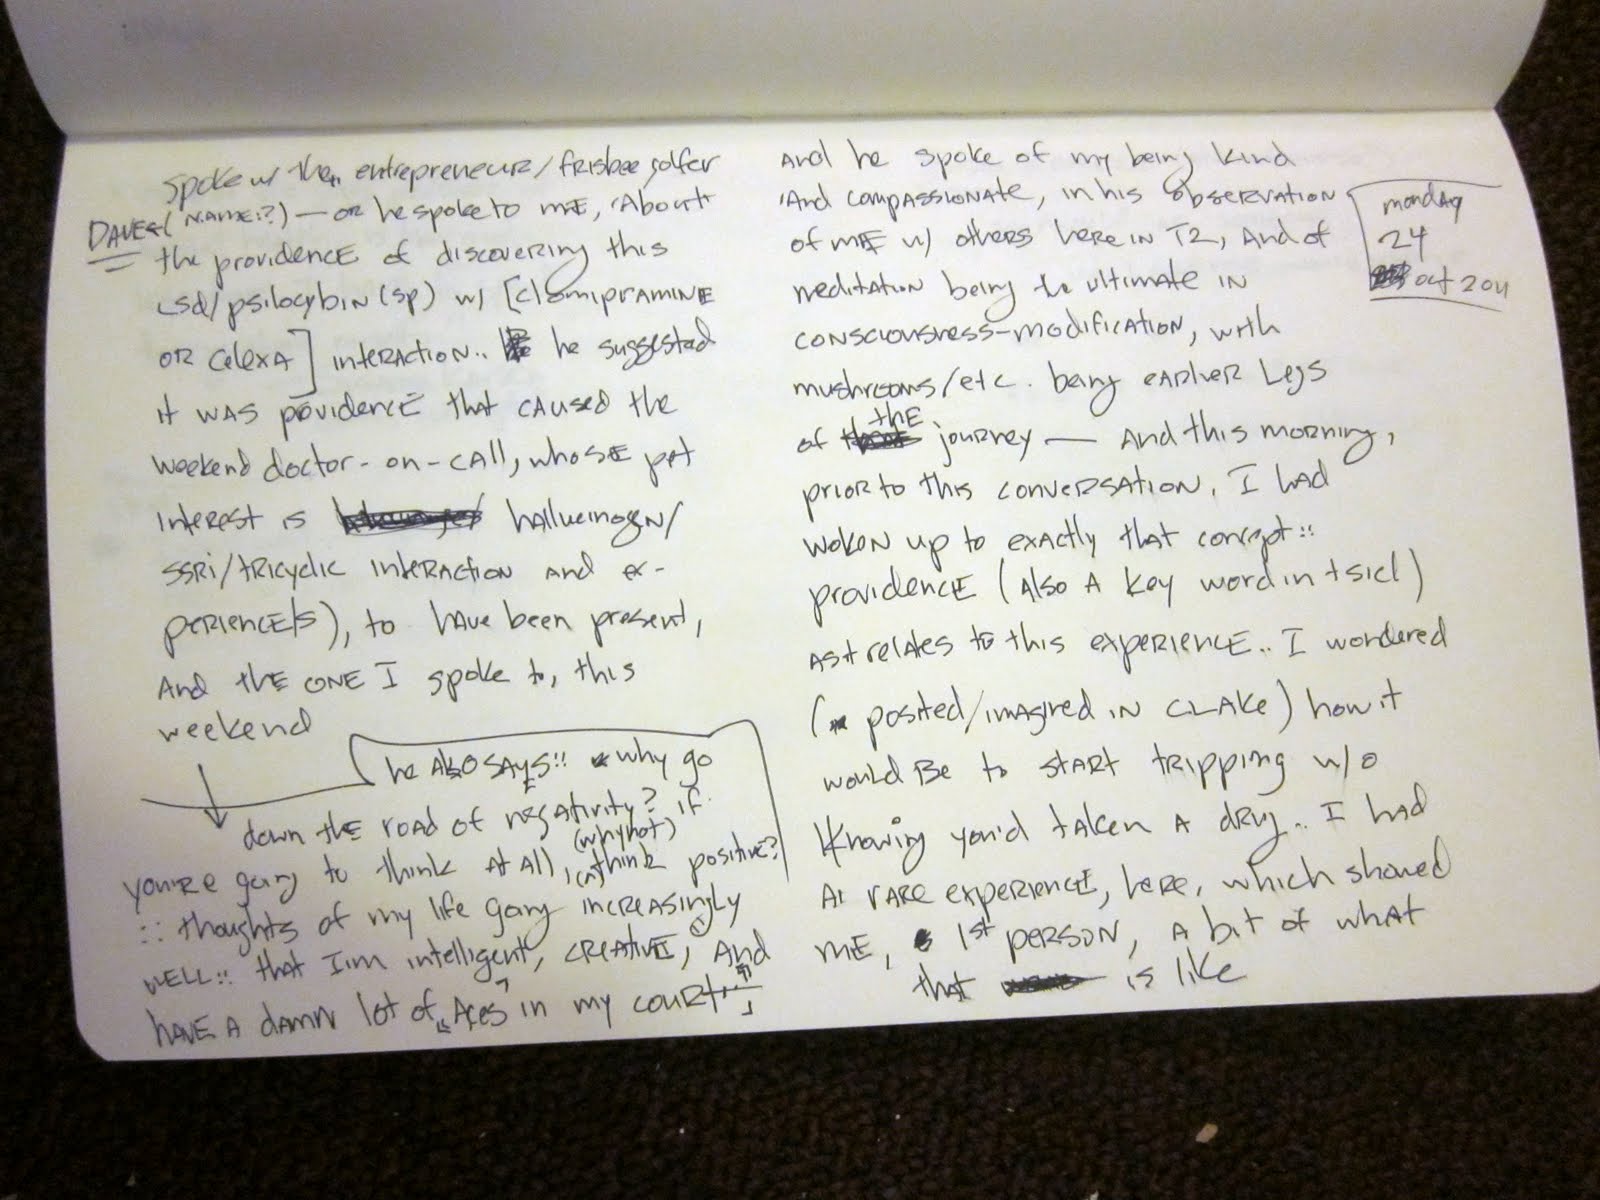 Spoke w/ the entrepreneur/frisbee golfer
Daves (name?) — or he spoke to me, about
the providence of discovering this
LSD/psilocybin (sp) w/ [clomipramine
or celexa] interaction.. he suggested
it was providence that caused the
weekend doctor-on-call, whose pet
interest is hallucinogen/
SSRI/tricyclic interaction and ex-
perience/s), to have been present,
and the one I spoke to, this
weekend
he also says:: why go
down the road of negativity? if
(why not)
you're going to think at all, think positive?
:: thoughts of my life going increasingly
well:: that I'm intelligent, creative, and
have a damn lot of "Aces" in my court
And he spoke of my being kind
and compassionate, in his observation
of me w/ others here in T2, and of
meditation being the ultimate in
consciousness-modification, with
mushrooms/etc. being earlier legs
of the journey — and this morning,
prior to this conversation, I had
woken up to exactly that concept::
providence (also a key word in tsicl)
as it relates to this experience.. I wondered
(posited/imagined in CLAKE) how it
would be to start tripping w/o
knowing you'd taken a drug.. I had
a rare experience, here, which showed
me, 1st person, a bit of what
that is like
monday
24
oct 2011